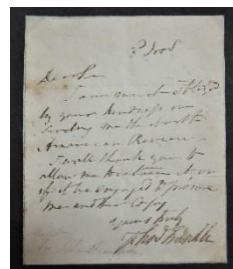 Dear Sir
I am much obliged
by your kindness in
sending me the North
American Review.
I will thank you to
allow me to retain it or
if it be engaged to procure
me another Copy
Yours truly